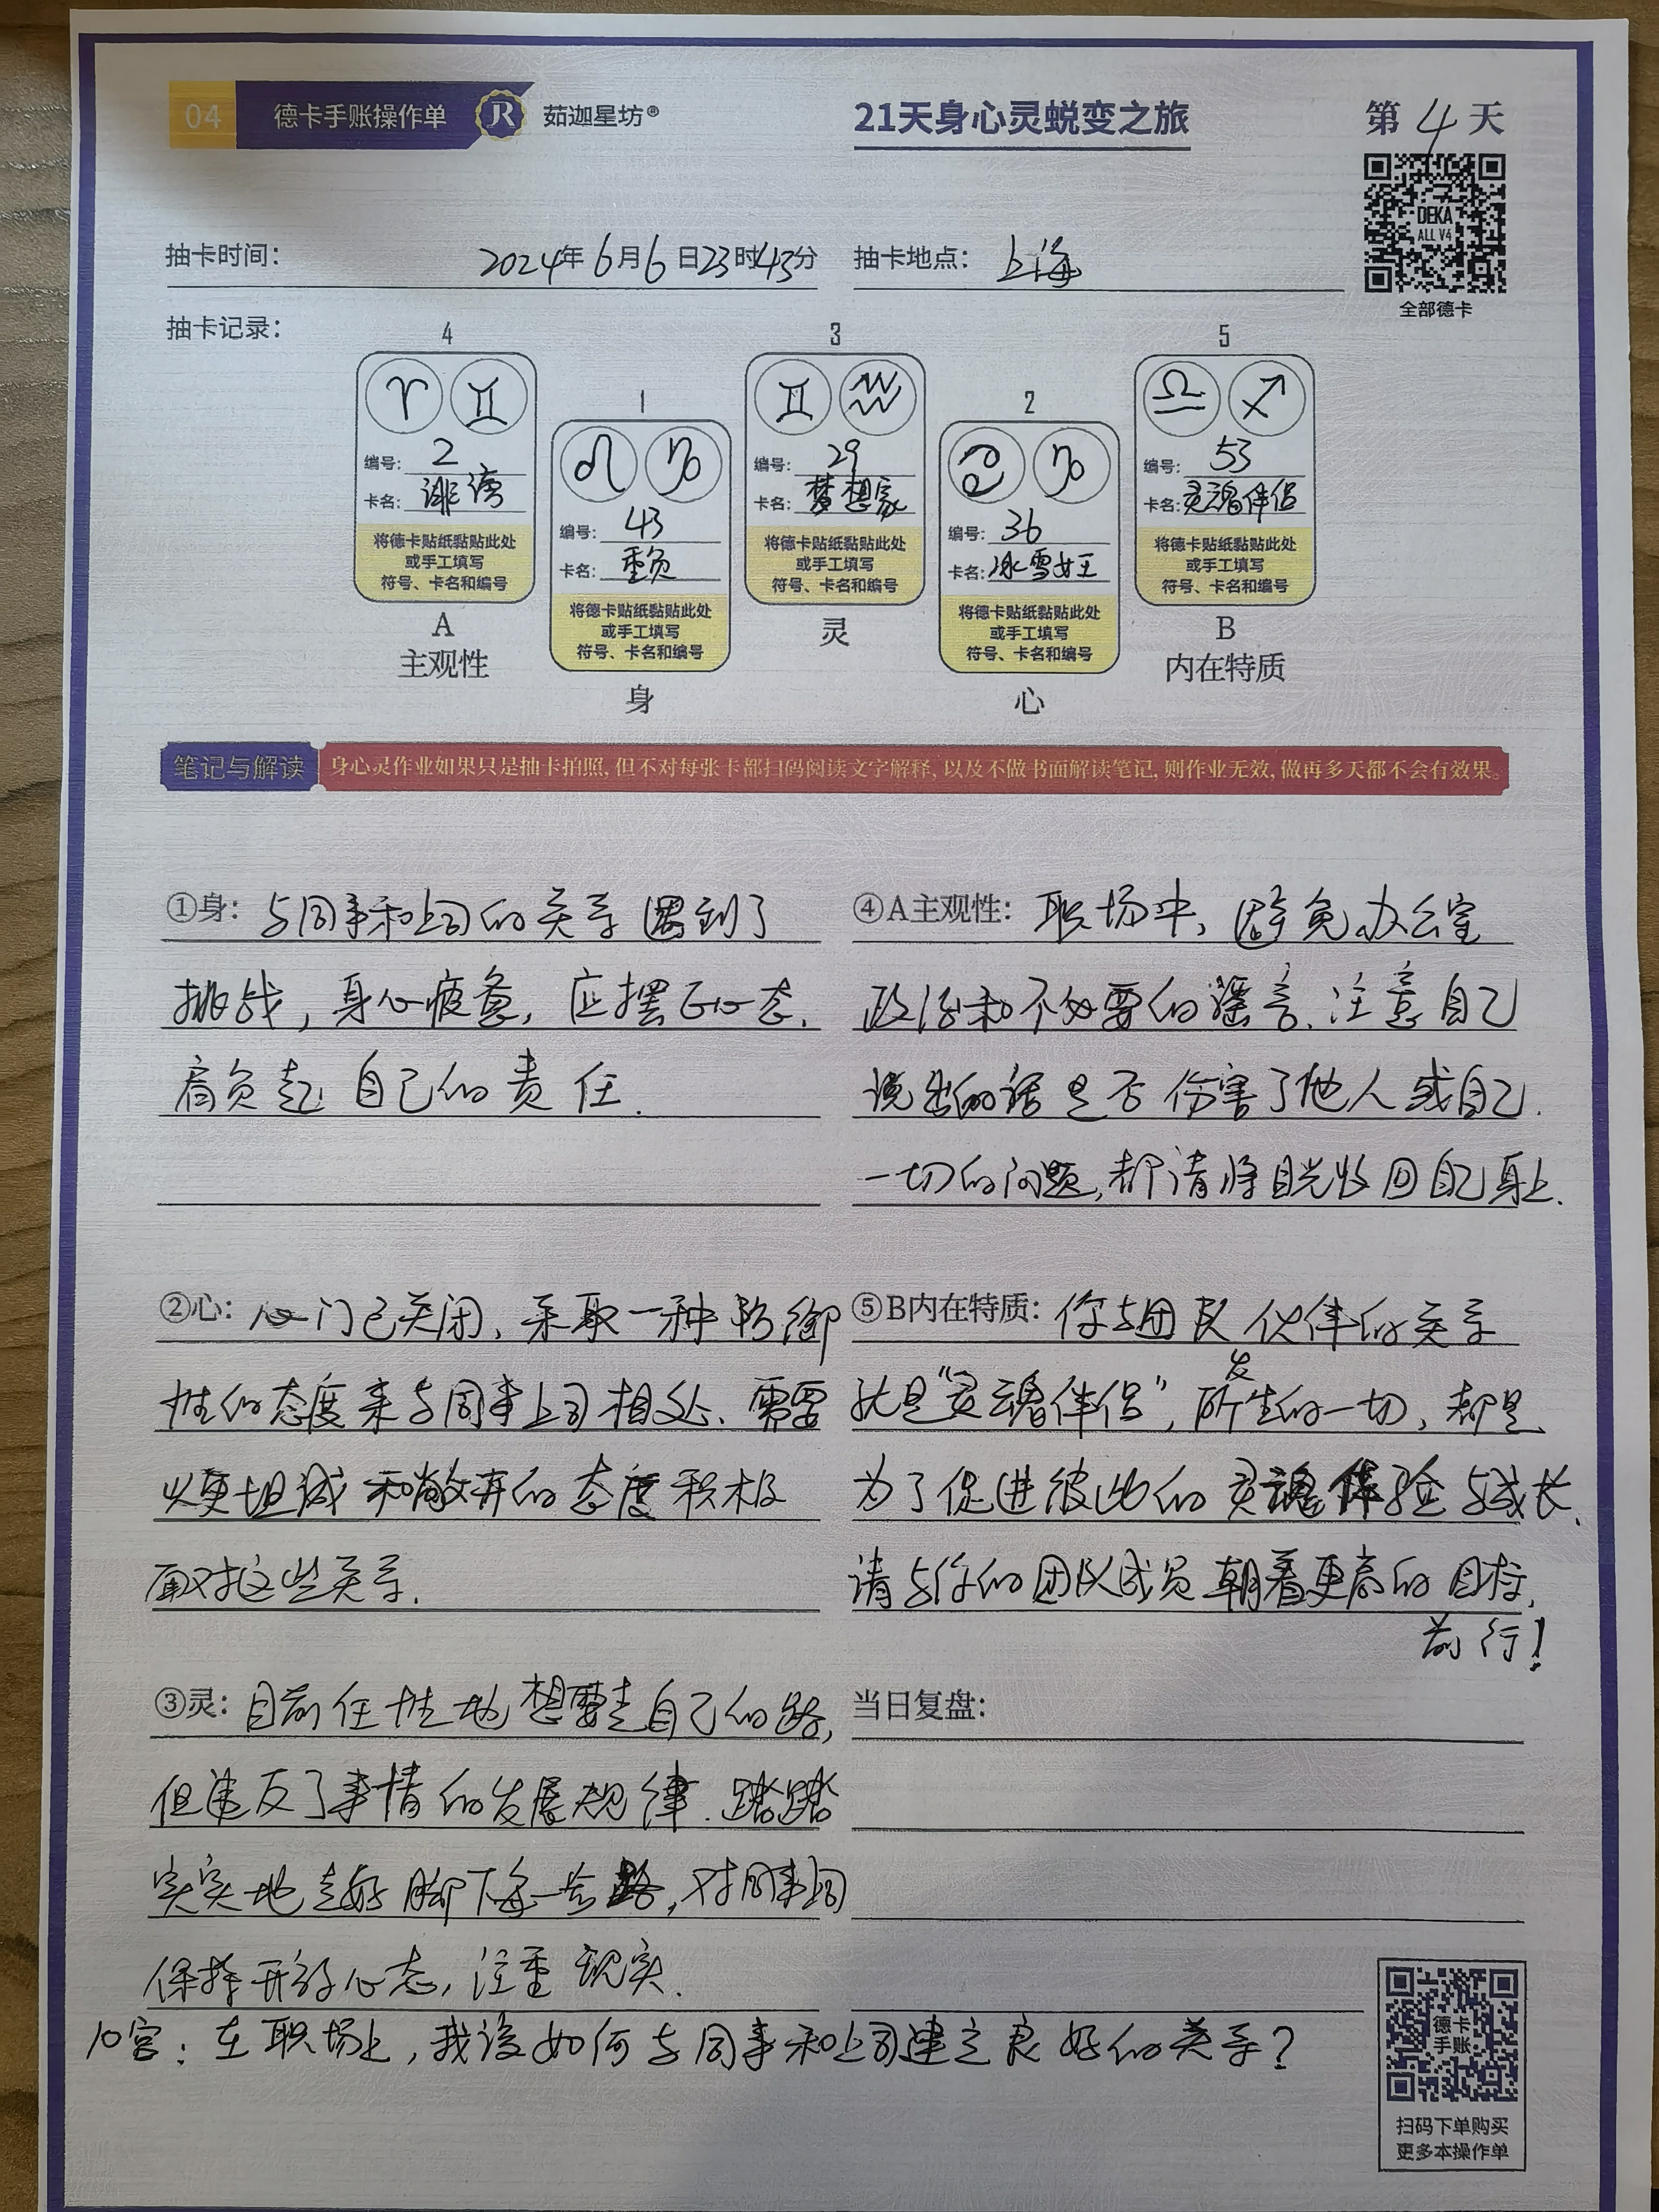 04 德卡手账操作单 JR 茹迦星坊® 21天身心灵蜕变之旅 第4天
DEKA
ALL V4
全部德卡
抽卡时间: 2024年6月6日23时43分 抽卡地点: 上海
抽卡记录:
4
♈ ♊
编号: 2
卡名: 诽谤
将德卡贴纸黏贴此处
或手工填写
符号、卡名和编号
A
主观性
1
♌ ♑
编号: 43
卡名: 重负
将德卡贴纸黏贴此处
或手工填写
符号、卡名和编号
身
3
♊ ♒
编号: 29
卡名: 梦想家
将德卡贴纸黏贴此处
或手工填写
符号、卡名和编号
灵
2
♋ ♑
编号: 36
卡名: 冰雪女王
将德卡贴纸黏贴此处
或手工填写
符号、卡名和编号
心
5
♎ ♐
编号: 53
卡名: 灵魂伴侣
将德卡贴纸黏贴此处
或手工填写
符号、卡名和编号
B
内在特质
笔记与解读 身心灵作业如果只是抽卡拍照, 但不对每张卡都扫码阅读文字解释, 以及不做书面解读笔记, 则作业无效, 做再多天都不会有效果。
①身: 与同事和上司的关系遇到了
挑战, 身心疲惫, 应摆正心态.
肩负起自己的责任.
②心: 心门已关闭, 采取一种防御
性的态度来与同事上司相处. 需要
以更坦诚和敞开的态度积极
面对这些关系.
③灵: 目前任性地想要走自己的路,
但违反了事情的发展规律. 踏踏
实实地走好脚下每一步路, 对同事上司
保持开放心态, 注重现实.
④A主观性: 职场中, 避免办公室
政治和不必要的谣言. 注意自己
说出的话是否伤害了他人或自己.
一切的问题, 都请将目光收回自己身上.
⑤B内在特质: 你与团队伙伴的关系
就是"灵魂伴侣", 所发生的一切, 都是
为了促进彼此的灵魂体验与成长.
请与你的团队成员朝着更高的目标,
前行!
当日复盘:
10宫: 在职场上, 我该如何与同事和上司建立良好的关系?
德卡
手账
扫码下单购买
更多本操作单